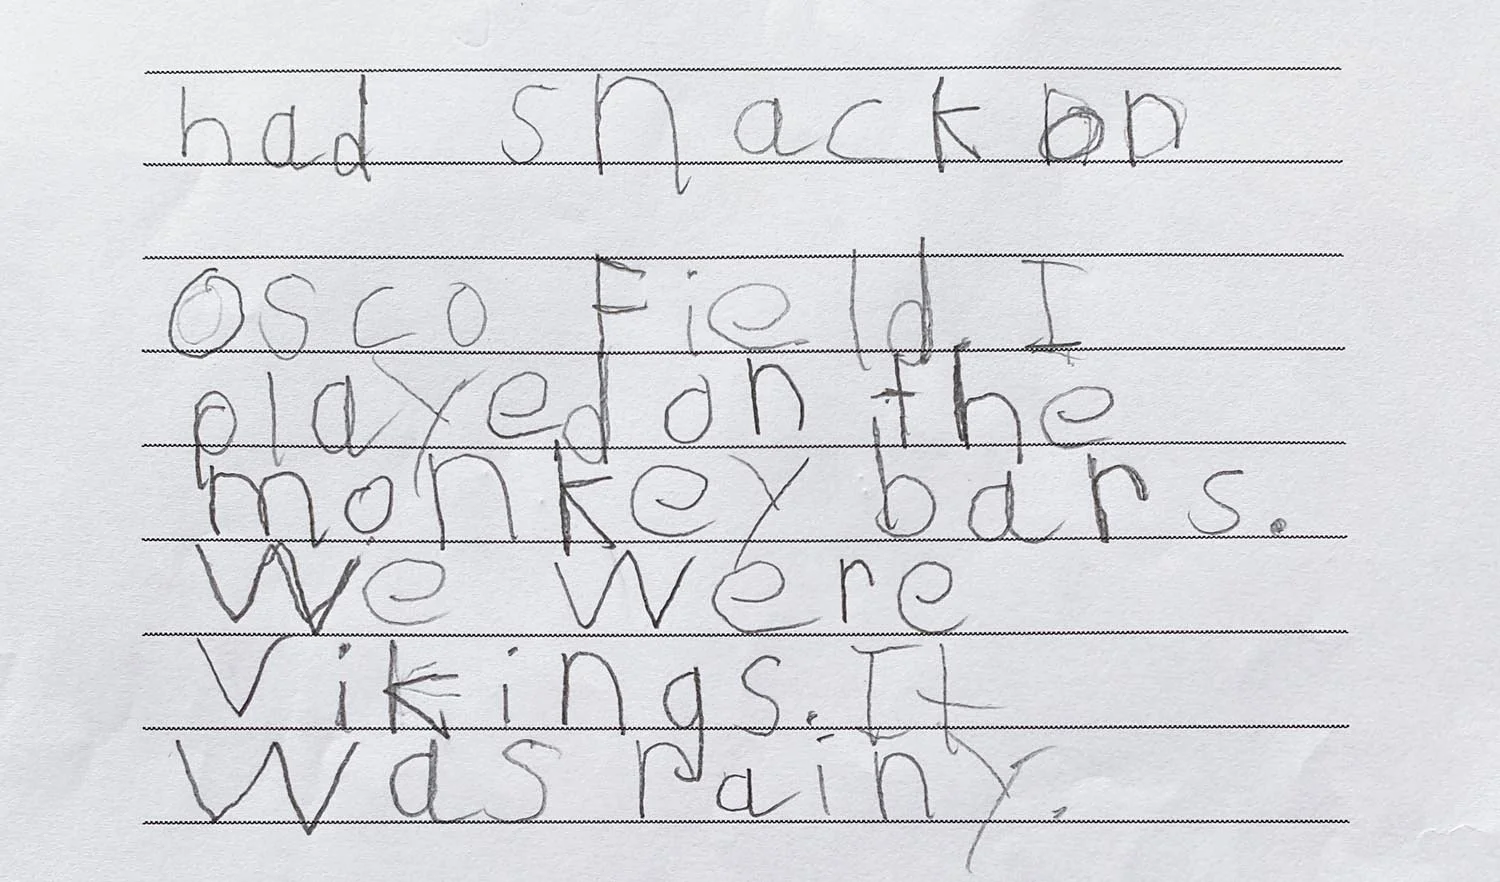 had snack on
Osco Field. I
played on the
monkey bars.
We were
Vikings. It
was rainy.